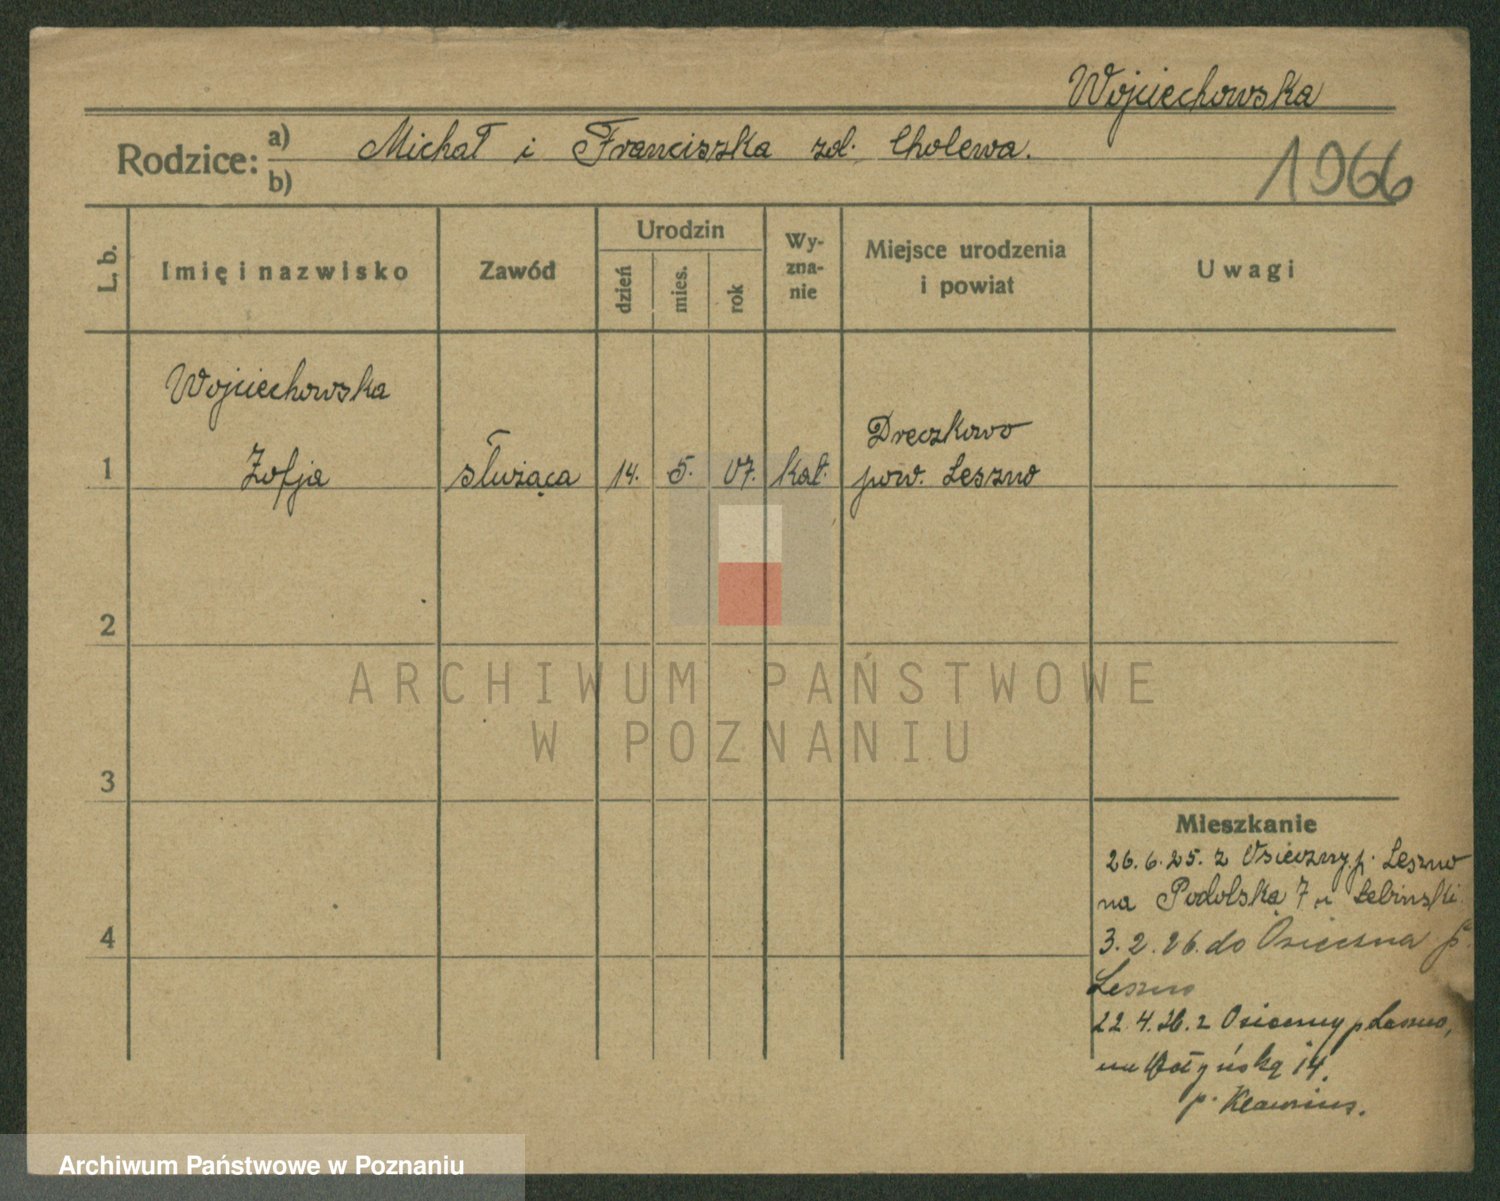 Wojciechowska
Rodzice: a) Michał i Franciszka zd. Cholewa.
b)
1966
L. b.
Imię i nazwisko
Zawód
Urodzin
dzień
mies.
rok
Wy-
zna-
nie
Miejsce urodzenia
i powiat
Uwagi
Wojciechowska
Dręczkowo
1 Zofja służąca 14. 5. 07. kat. pow. Leszno
2
3
4
Mieszkanie
26.6.25. z Osieczny p. Leszno
na Podolską 7 u Łebinski
3.2.26. do Osieczna p.
Leszno
22.4.26. z Osieczny p. Leszno,
na 14.
p.
ARCHIWUM PAŃSTWOWE
W POZNANIU
Archiwum Państwowe w Poznaniu